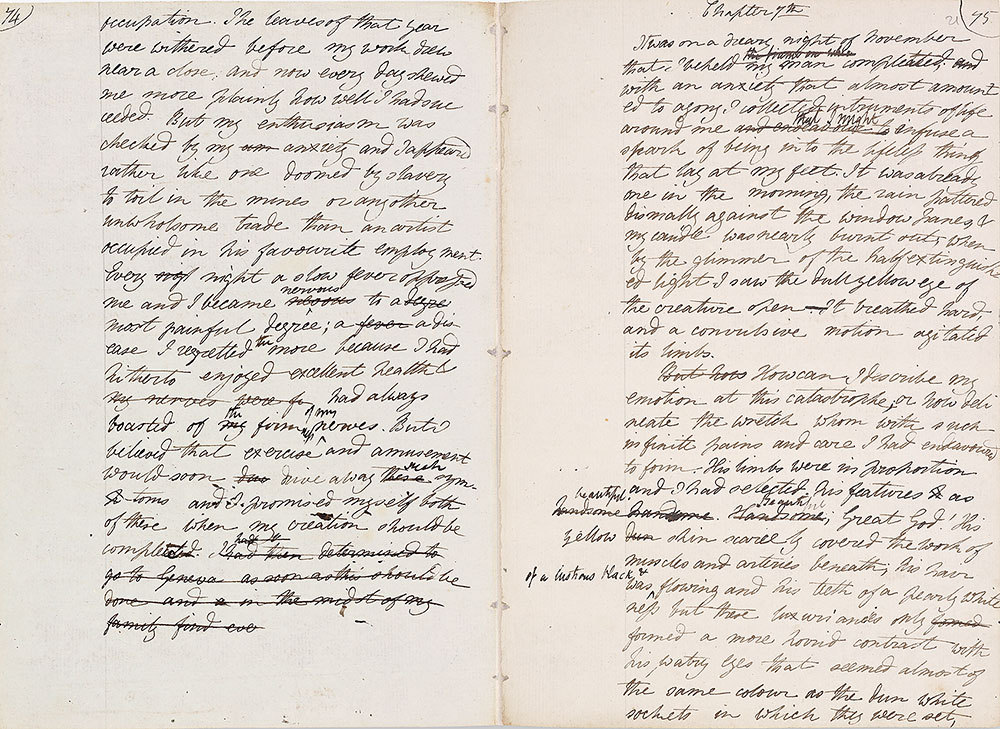 74)
occupation. The leaves of that year
were withered before my work drew
near a close. and now every day shewed
me more plainly how well I had suc
ceeded. But my enthusiasm was
checked by my anxiety and I appeared
rather like one doomed by slavery
to toil in the mines or any other
unwholsome trade than an artist
occupied in his favourite employment.
Every night a slow fever oppressed
nervous
me and I became to a degre
most painful degree; a fever a dis
case I regretted the more because I had
hitherto enjoyed excellent health &
my nerves were fi had always
the of my
boasted of my firm nerves. But I
believed that exercise and amusement
such
would soon drive away these sym-
toms and I promised myself both
of these when my creation should be
completed. I had then determined to
go to Geneva as soon as this should be
done and in the midst of my
family find eve
Chapter 7th
75
It was on a dreary night of November
the frame on whic
that I beheld my man compleated; and
with an anxiety that almost amount
ed to agony, I collected instruments of life
that I might
around me and infuse a
spark of being into the lifeless thing
that lay at my feet. It was already
one in the morning, the rain pattered
dismally against the window panes, &
my candle was nearly burnt out, when
by the glimmer of the half extinguish
ed light I saw the dull yellow eye of
the creature open. It breathed hard,
and a convulsive motion agitated
its limbs.
But how How can I describe my
emotion at this catastrophe; or how deli
neate the wretch whom with such
infinite pains and care I had endeavoured
to form. His limbs were in proportion
and I had selected his features as
beautiful
handsome handsome. Handsome; Great God! His
Beautiful
yellow dun skin scarcely covered the work of
muscles and arteries beneath; his hair
of a lustrous black &
was flowing and his teeth of a pearly white
ness but these luxuriancies only formed
formed a more horrid contrast with
his watry eyes that seemed almost of
the same colour as the dun white
sockets in which they were set,